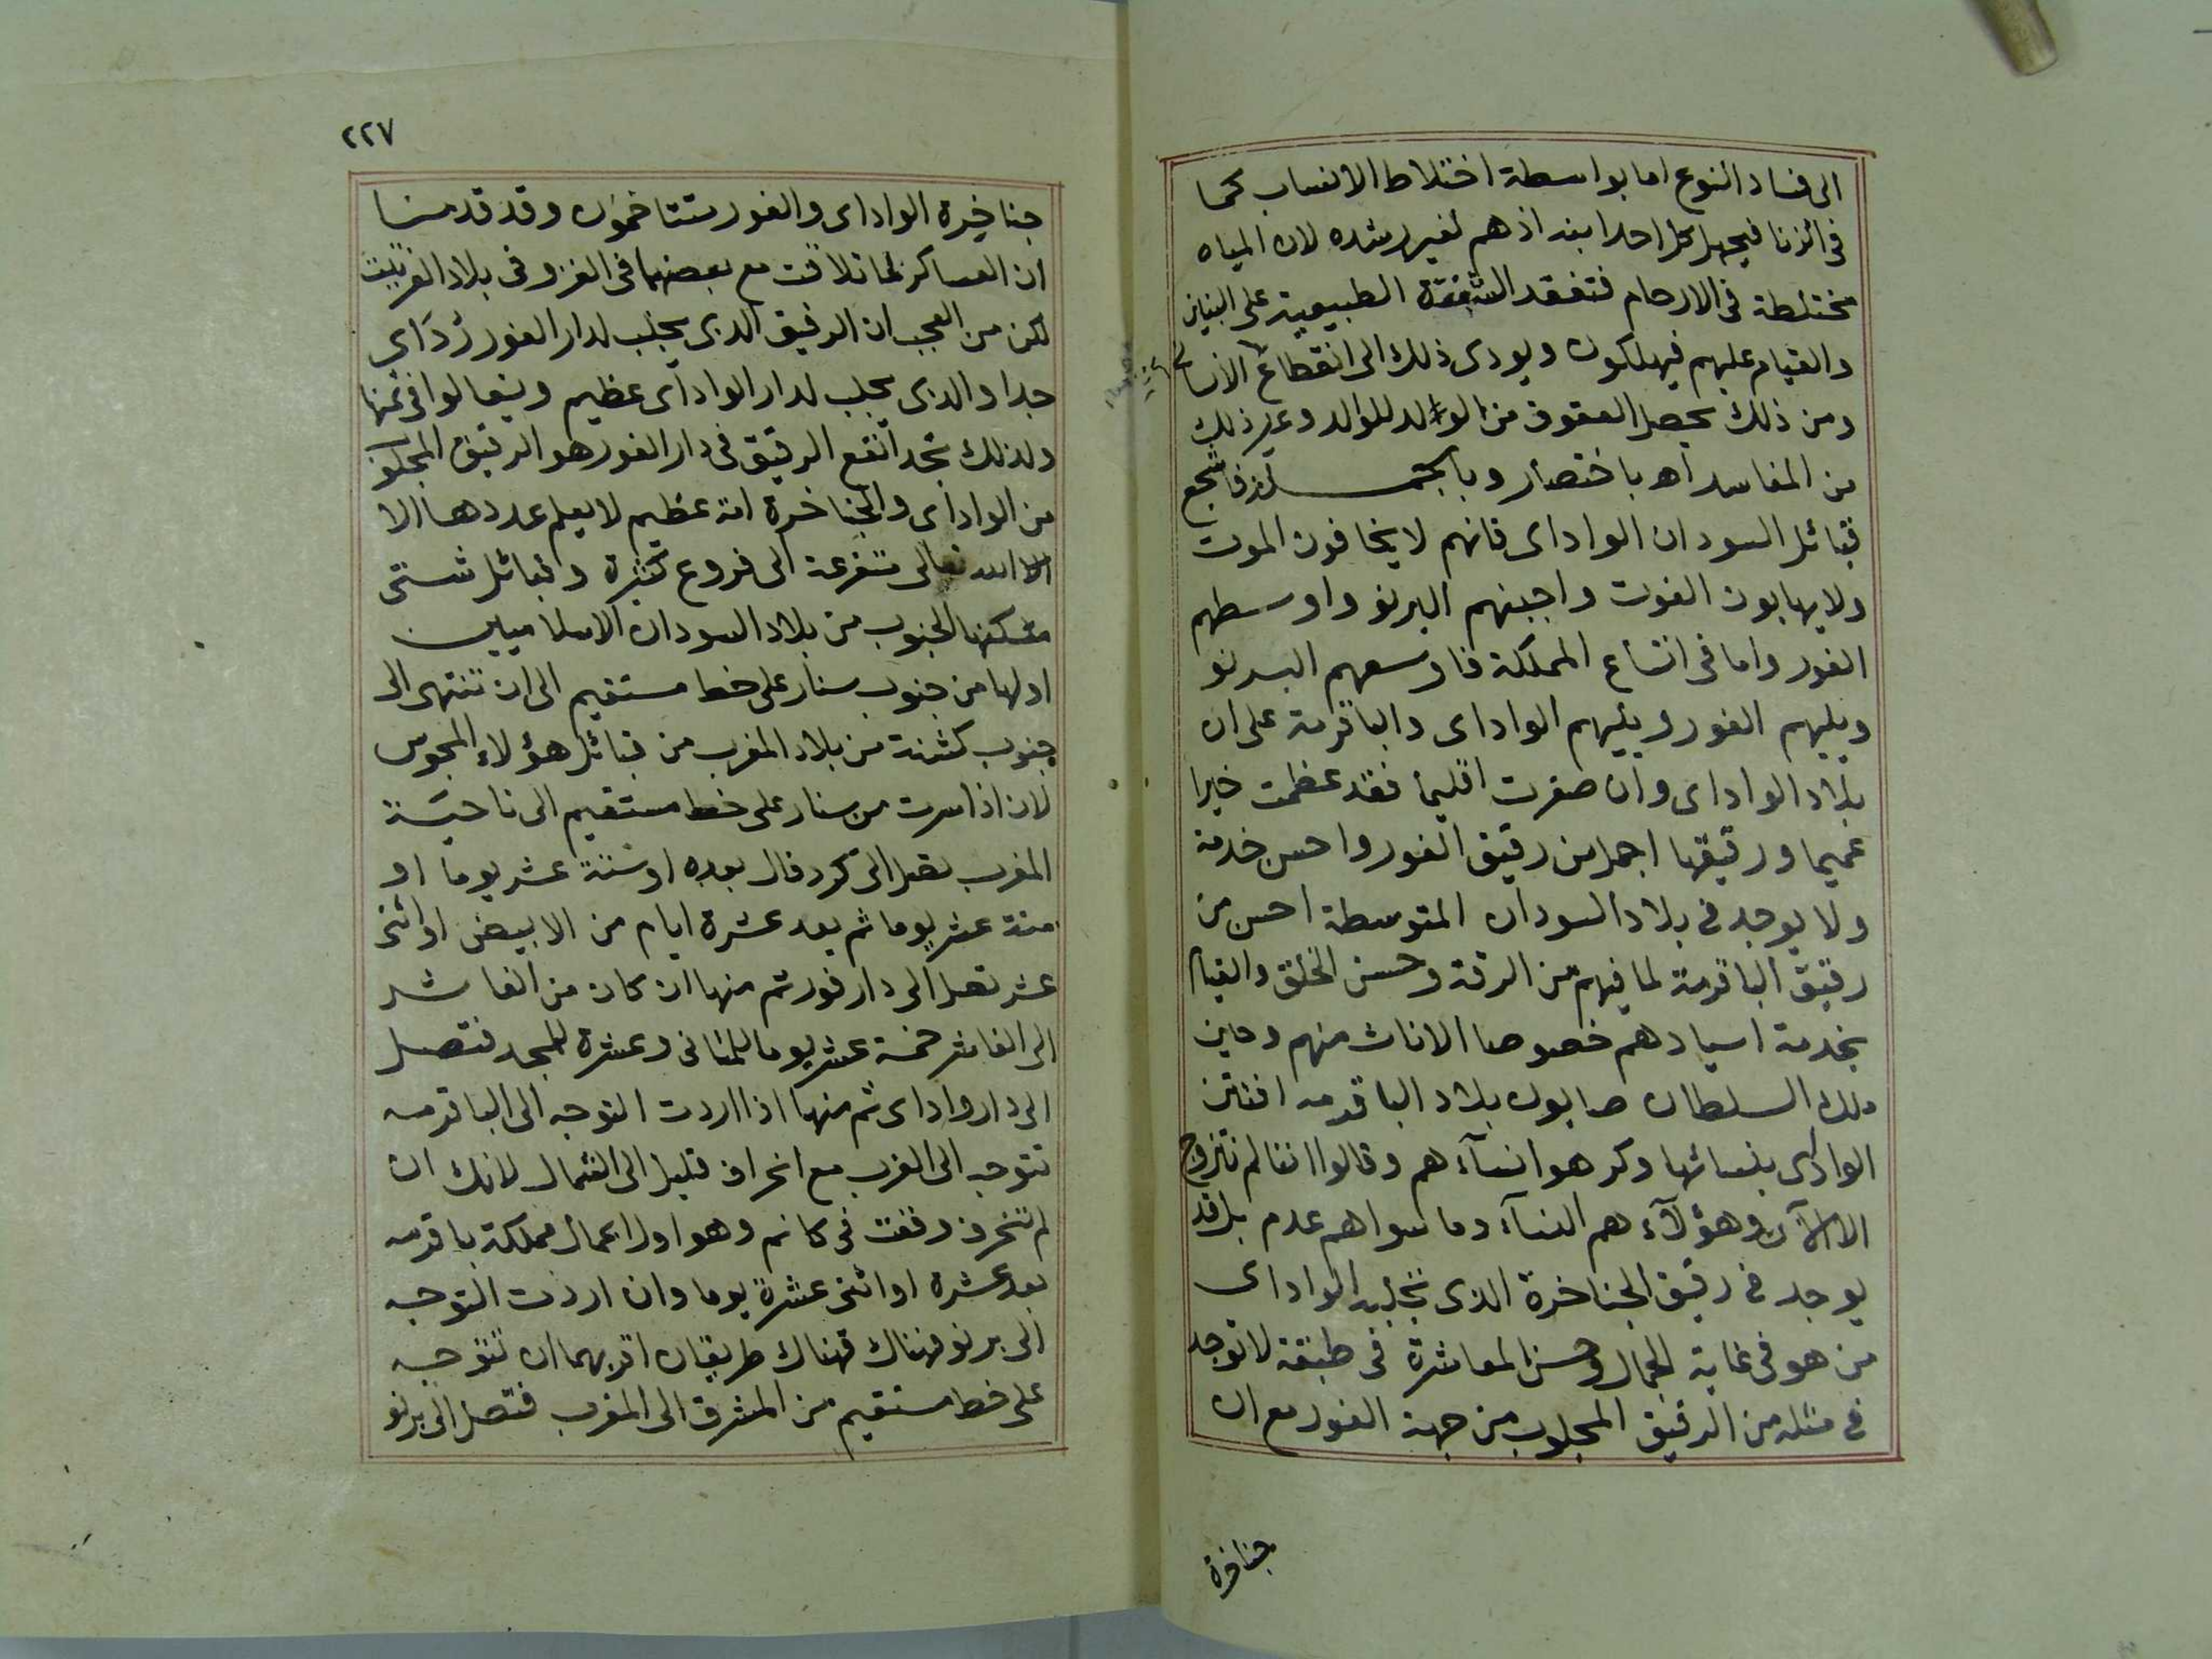 الى فساد النوع اما بواسطة اختلاط الانساب كما
فى الزنا فيجهل كل احد ابنه اذ هم لغير رشده لان المياه
مختلطة فى الارحام فتفقد الشفقة الطبيعية على البنين
والقيام عليهم فيهلكون ويودى ذلك الى انقطاع الانسال
ومن ذلك يحصل العقوق من الولد للوالد وغير ذلك
من المفاسد اه باختصار وبالجملة فاشجع
قبائل السودان الواداى فانهم لا يخافون الموت
ولا يهابون الفوت واجبنهم البرنو واوسطهم
الفور واما فى اتساع المملكة فاوسعهم البرنو
ويليهم الفور ويليهم الواداى والباقرمة على ان
بلاد الواداى وان صغرت اقليما فقد عظمت خيرا
عميما ورقيقها اجمل من رقيق الفور واحسن خدمة
ولا يوجد فى بلاد السودان المتوسطة احسن من
رقيق الباقرمة لما فيهم من الرقة وحسن الخلق والقيام
بخدمة اسيادهم خصوصا الاناث منهم وحين
ملك السلطان صابون بلاد الباقرمه افتتن
الواداى بنسائها وكرهوا نساءهم وقالوا اننا لم نتزوج
الا الآن وهؤلآء هم النسآء وما سواهم عدم بل قد
يوجد فى رقيق الجناخرة الذى تجلبه الواداى
من هو فى غاية الجمال وحسن المعاشرة فى طبقة لا توجد
فى مثله من الرقيق المجلوب من جهة الفور مع ان
جناخرة
٢٢٧
جناخرة الواداى والفور متتاخمون وقد قدمنا
ان العساكر لما تلاقت مع بعضها فى الغزو فى بلاد الفرتيت
لكن من العجب ان الرقيق الذى يجلب لدار الفور ردَاى
جدا والذى يجلب لدار الواداى عظيم ويتغالوا فى ثمنها
ولذلك تجد انفع الرقيق فى دار الفور هو الرقيق المجلوب
من الواداى والجناخرة امة عظيم لا يعلم عددها الا
الا الله تعالى متفرعة الى فروع كثيرة وقبائل شتى
مسكنها الجنوب من بلاد السودان الاسلاميين
اولها من جنوب سنار على خط مستقيم الى ان تنتهى الى
جنوب كشنة من بلاد المغرب من قبائل هؤلاء المجوس
لان اذا سرت من سنار على خط مستقيم الى ناحية
المغرب تصل الى كردفال بعده اوستة عشر يوما او
خمسة عشر يوما ثم بعد عشرة ايام من الابيض او اثنى
عشر تصل الى دارفور ثم منها ان كان من الفاشر
الى الفاشر خمسة عشر يوما للمتانى وعشرة للمجد فتصل
الى دار واداى ثم منها اذا اردت التوجه الى الباقرمه
تتوجه الى الغرب مع انحراف قليل الى الشمال لانك ان
لم تنحرف وقعت فى كانم وهو اول اعمال مملكة باقرمه
بعد عشرة او اثنى عشرة يوما وان اردت التوجه
الى برنو فهناك فهناك طريقان اقربهما ان تتوجه
على خط مستقيم من المشرق الى المغرب فتصل الى برنو